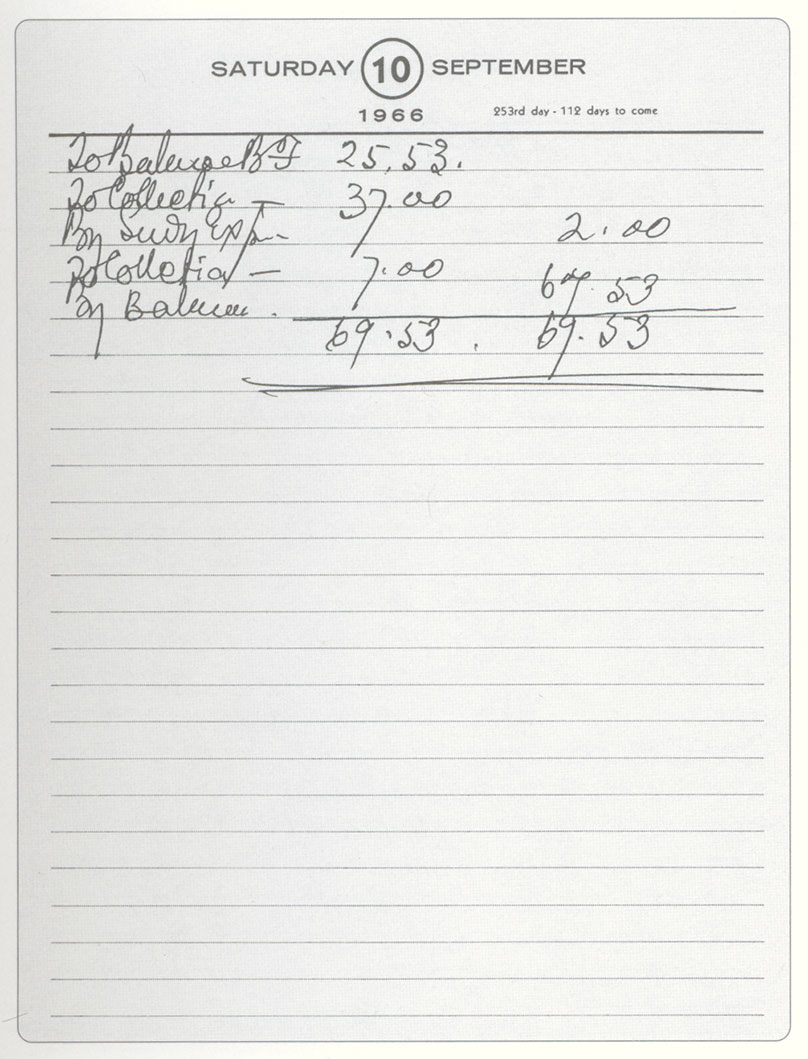 SATURDAY 10 SEPTEMBER
1966 253rd day - 112 days to come
To Balance B/F 25.53.
To Collection — 37.00
By Sundry Exp. — 2.00
To Collection — 7.00
By Balance. 67.53
69.53 . 69.53